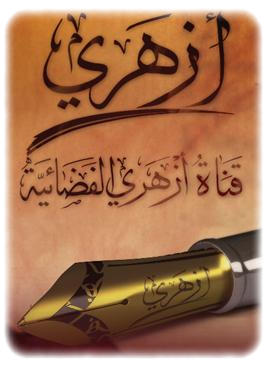 أزهري
قناة أزهري الفضائية
أزهري